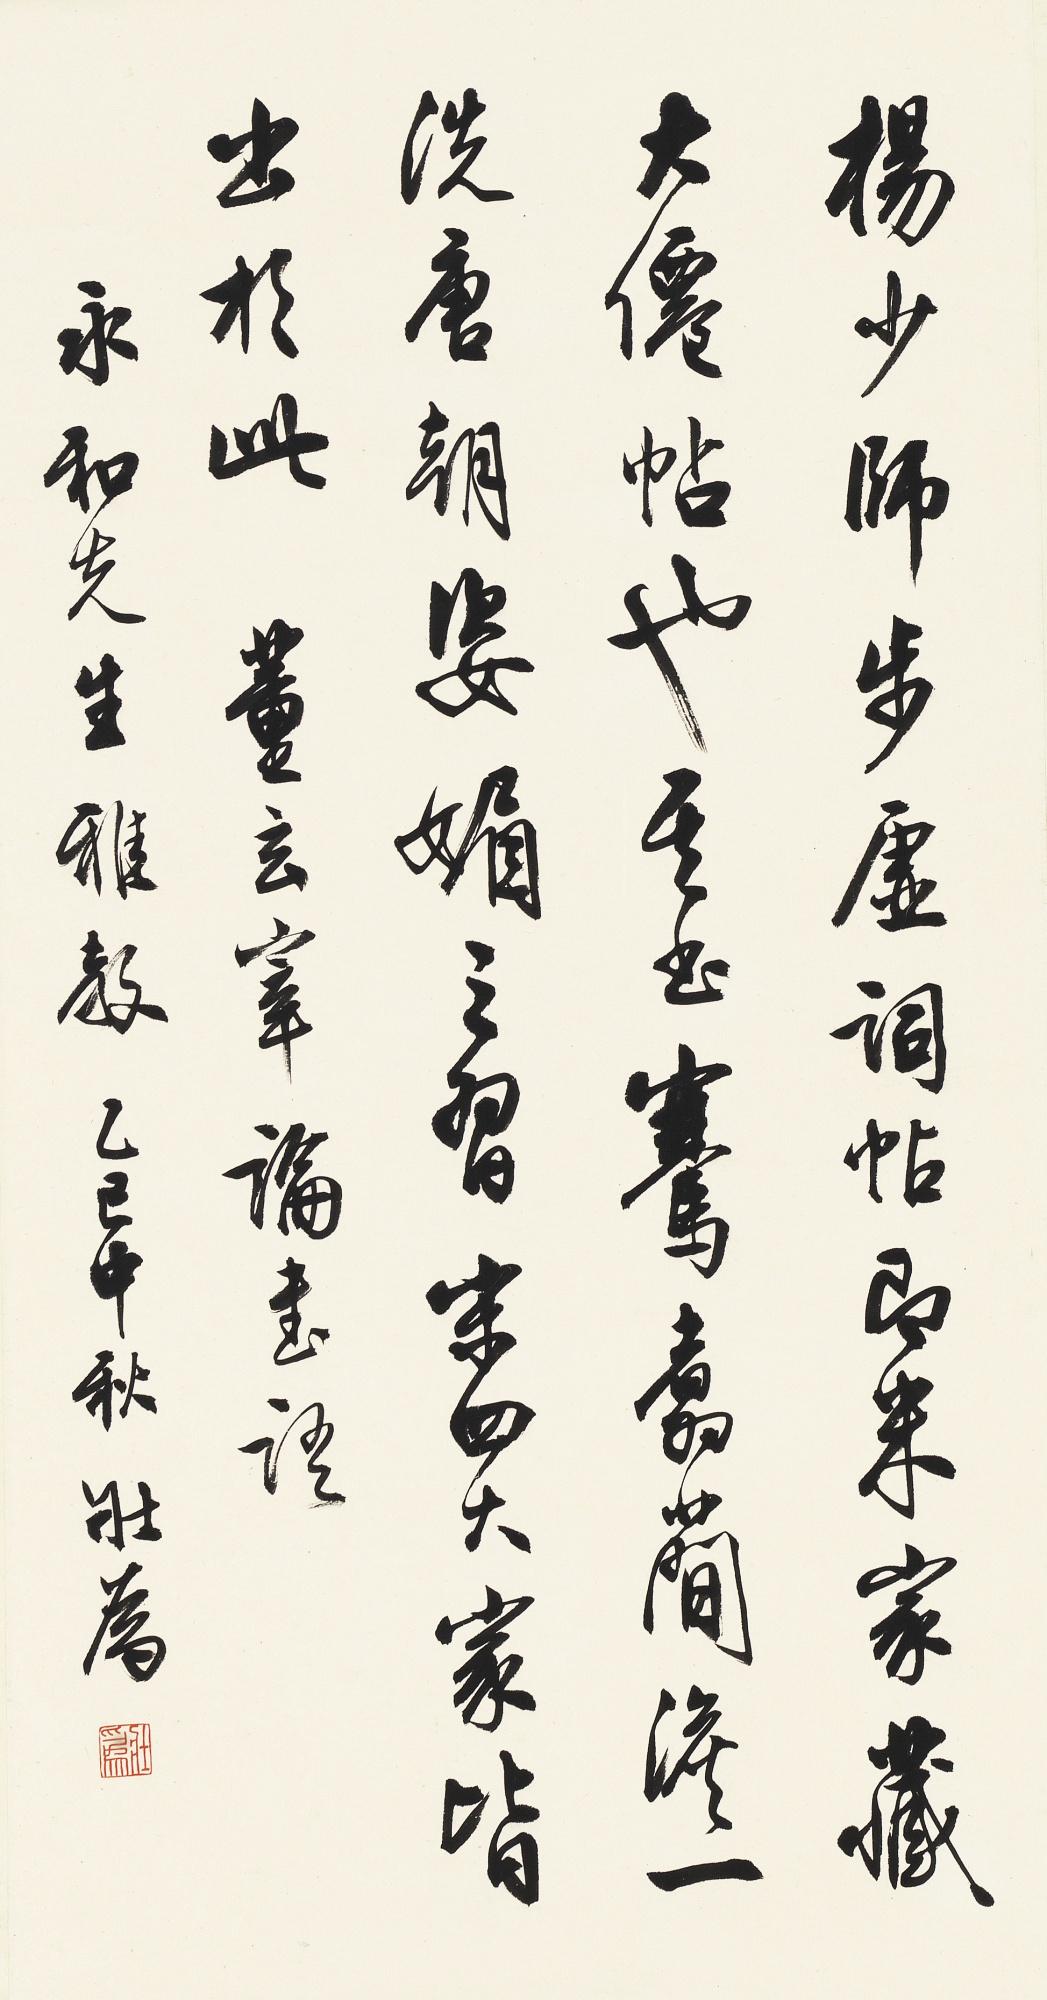 楊少師步虛詞帖即米家藏
大僊帖也其書騫翥蕳澹一
洗唐朝姿媚之習宋四大家皆
出於此 董玄宰論書語
永和先生雅教 乙巳中秋 壯為
壯為